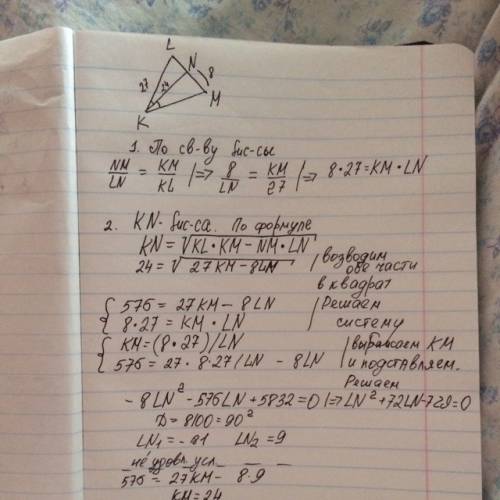 L
N
8
27
24
M
K
1. По св-ву бис-сы
NM/LN = KM/KL |=> 8/LN = KM/27 |=> 8·27=KM·LN
2. KN- бис-са. По формуле
KN = √KL·KM-NM·LN
24 = √27KM-8LN | возводим
обе части
в квадрат
{ 576 = 27KM-8LN | Решаем
8·27 = KM·LN систему
{ KM=(8·27)/LN | выражаем KM
576 = 27·8·27/LN - 8LN и подставляем.
Решаем
-8LN² -576LN+5832=0 |=> LN²+72LN-729=0
D=8100=90²
LN₁=-81 LN₂=9
не удовл. усл.
576 = 27KM-8·9
KM=24